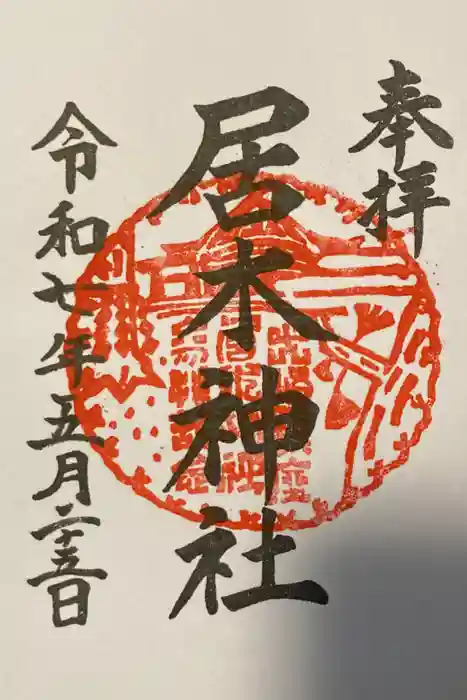 奉拝
居木神社
令和七年五月二十五日